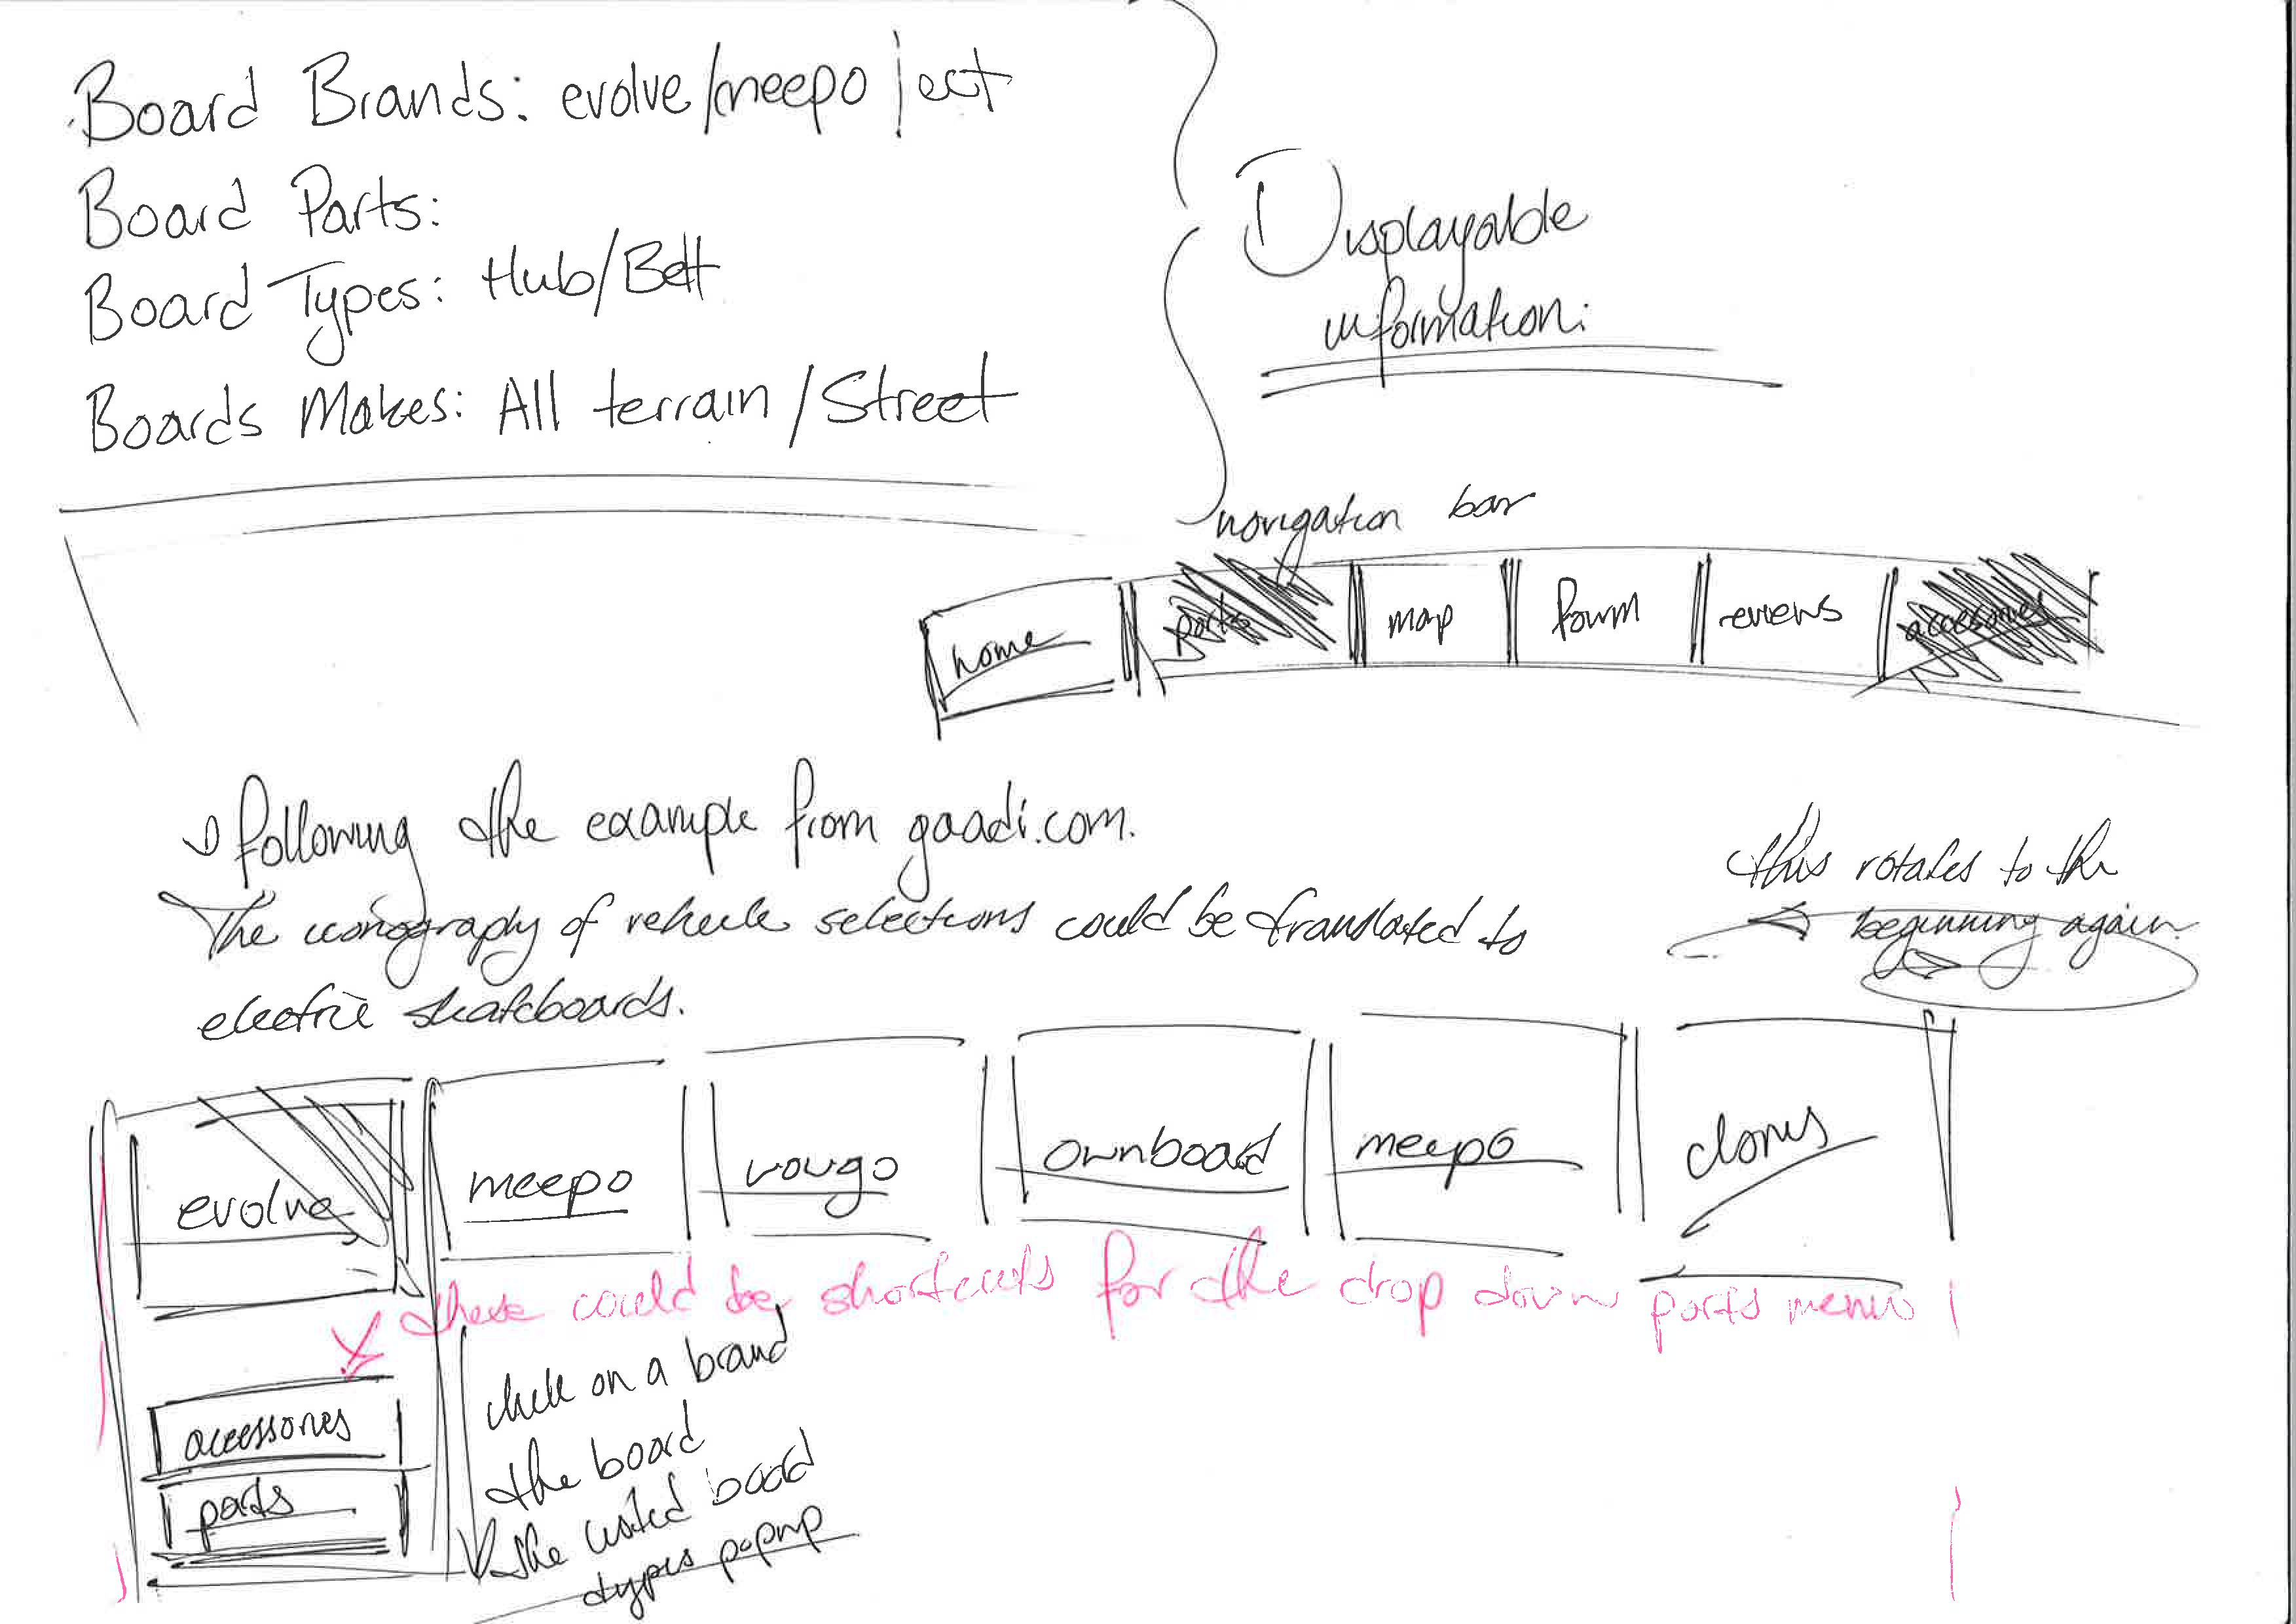 Board Brands: evolve/meepo/ect
Board Parts:
Board Types: Hub/Belt
Boards Makes: All terrain/Street
Displayable
information:
navigation bar
home
parts
map
forum
reviews
accessories
following the example from gaadi.com.
The iconography of vehicle selections could be translated to
electric skateboards.
this rotates to the
beginning again.
evolve
meepo
vougo
ownboard
meepo
clones
these could be shortcuts for the drop down parts menu
accessories
parts
click on a brand
the board
the listed board
types popup